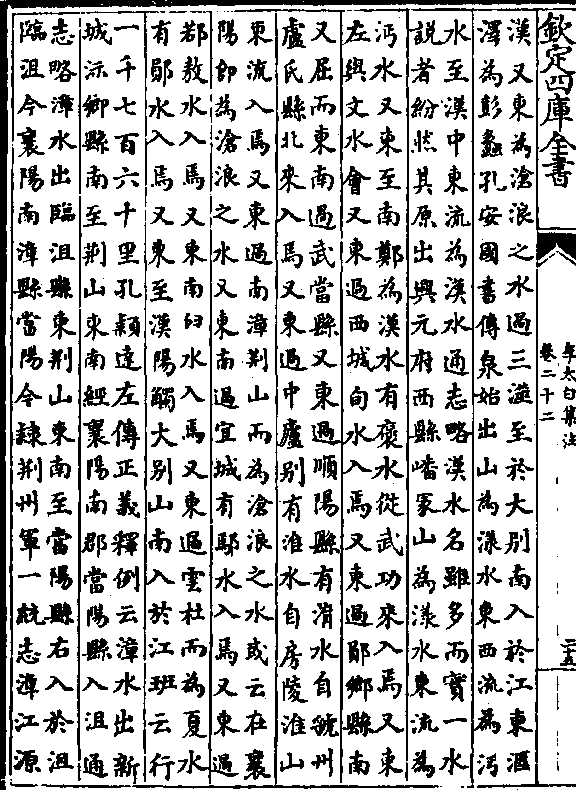 欽定四庫全書
漢又東為滄浪之水過三澨至於大别南入於江東滙
澤為彭蠡孔安國書傳泉始出山為漾水東西流為沔
水至漢中東流為漢水通志略漢水名雖多而實一水
説者紛然其原出興元府西縣嶓冢山為漾水東流為
沔水又東至南鄭為漢水有褒水從武功來入焉又東
左與文水會又東過西城旬水入焉又東過鄖鄉縣南
又屈而東南過武當縣又東過順陽縣有淯水自虢州
盧氏縣北來入焉又東過中廬别有淮水自房陵淮山
東流入焉又東過南漳荆山而為滄浪之水或云在襄
陽即為滄浪之水又東南過宜城有鄢水入焉又東過
鄀敖水入焉又東南臼水入焉又東過雲杜而為夏水
有鄖水入焉又東至漢陽觸大别山南入於江班云行
一千七百六十里孔穎達左傳正義釋例云漳水出新
城沶鄉縣南至荆山東南經襄陽南郡當陽縣入沮通
志略漳水出臨沮縣東荆山東南至當陽縣右入於沮
臨沮今襄陽南漳縣當陽今隸荆州軍一統志漳江源
李太白集注
卷二十二